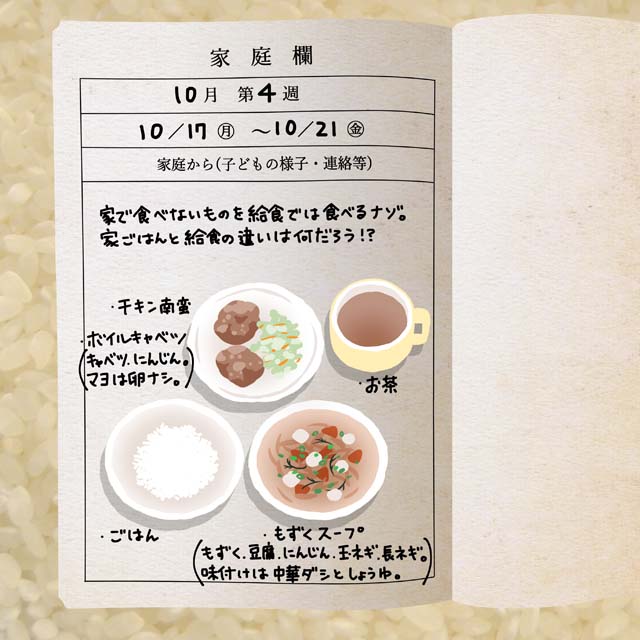 家庭欄
10月 第4週
10/17㊊ ～10/21㊎
家庭から(子どもの様子・連絡等)
家で食べないものを給食では食べるナゾ。
家ごはんと給食の違いは何だろう!?
・チキン南蛮
・ボイルキャベツ
(キャベツ、にんじん。
マヨは卵ナシ。)
・お茶
・ごはん
・もずくスープ
(もずく、豆腐、にんじん、玉ネギ、長ネギ。
味付けは中華ダシとしょうゆ。)